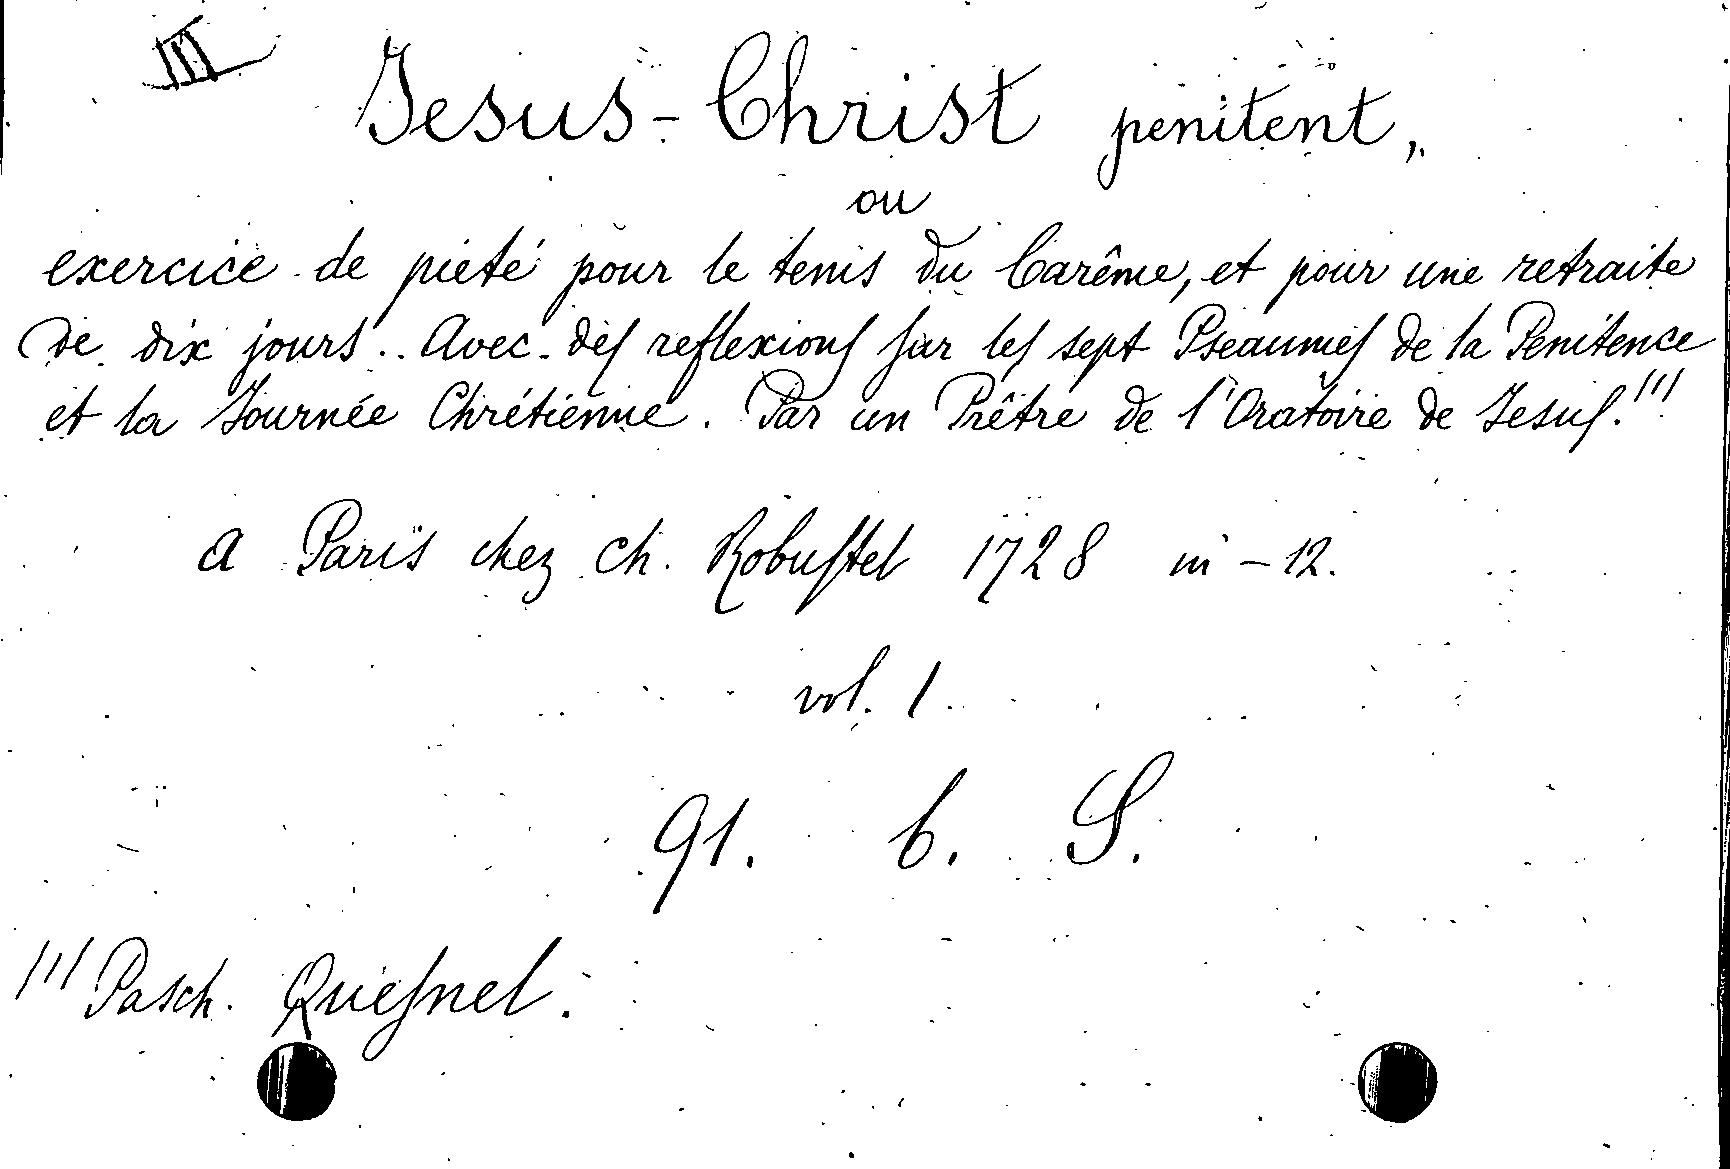 III
Jesus-Christ penitent,
ou
exercice de pieté pour le tems du Carême, et pour une retraite
de dix jours.. Avec des reflexions sur les sept Pseaumes de la Penitence
et la Journée Chrétienne. Par un Prêtre de l'Oratoire de Jesus. /1/
a Paris chez Ch. Robustel 1728 in-12.
vol. 1.
91. b. S.
/1/ Pasch. Quesnel.